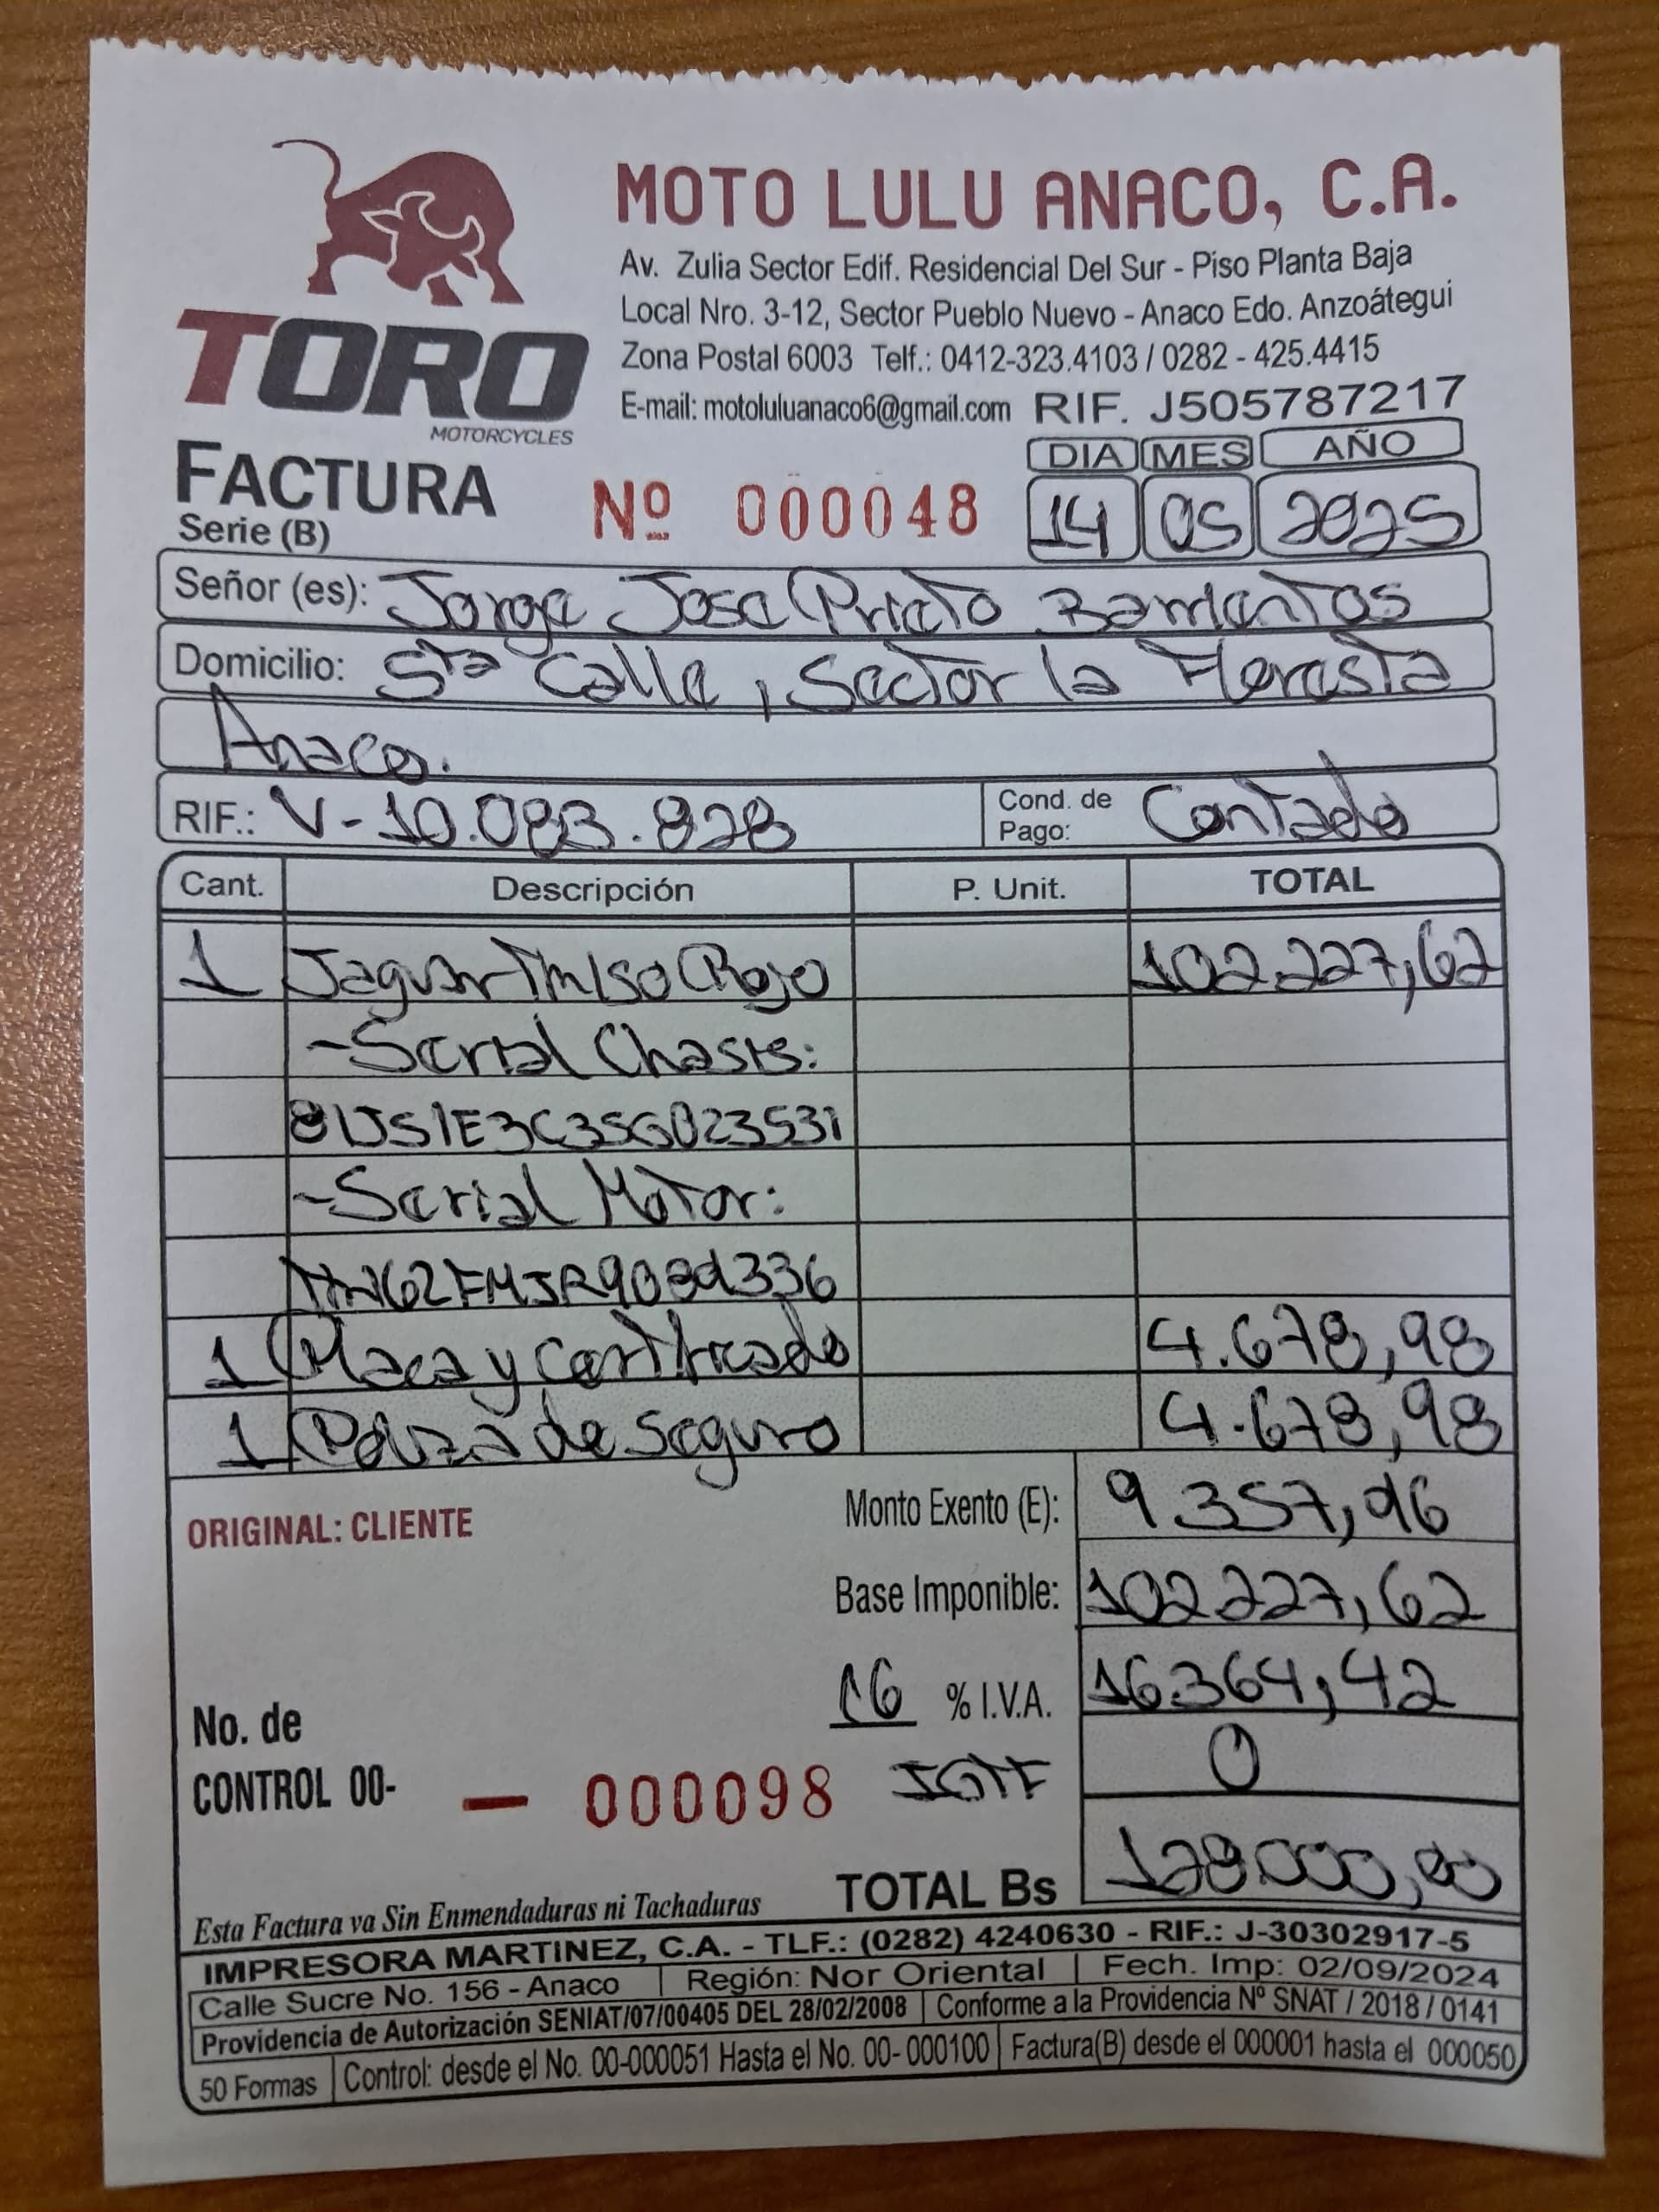 MOTO LULU ANACO, C.A.
Av. Zulia Sector Edif. Residencial Del Sur - Piso Planta Baja
Local Nro. 3-12, Sector Pueblo Nuevo - Anaco Edo. Anzoátegui
Zona Postal 6003 Telf.: 0412-323.4103 / 0282 - 425.4415
E-mail: motoluluanaco6@gmail.com RIF. J505787217
TORO
MOTORCYCLES
FACTURA
Serie (B)
Nº 000048
DIA MES AÑO
14 05 2025
Señor (es): Jorge Jose Prieto Barrientos
Domicilio: 5ta Calle, Sector la Floresta
Anaco.
RIF.: V-10.083.828 Cond. de Pago: Contado
Cant. Descripción P. Unit. TOTAL
1 Jaguar 150 Rojo 102.227,62
-Serial Chasis:
-Serial Motor:
1 Placa y Certificado 4.678,98
1 Poliza de Seguro 4.678,98
ORIGINAL: CLIENTE
Monto Exento (E): 9.357,96
Base Imponible: 102.227,62
16 % I.V.A. 16364,42
IGTF 0
No. de
CONTROL 00- — 000098
TOTAL Bs
Esta Factura va Sin Enmendaduras ni Tachaduras
IMPRESORA MARTINEZ, C.A. - TLF.: (0282) 4240630 - RIF.: J-30302917-5
Calle Sucre No. 156 - Anaco Región: Nor Oriental Fech. Imp: 02/09/2024
Providencia de Autorización SENIAT/07/00405 DEL 28/02/2008 Conforme a la Providencia Nº SNAT / 2018 / 0141
50 Formas Control: desde el No. 00-000051 Hasta el No. 00- 000100 Factura(B) desde el 000001 hasta el 000050